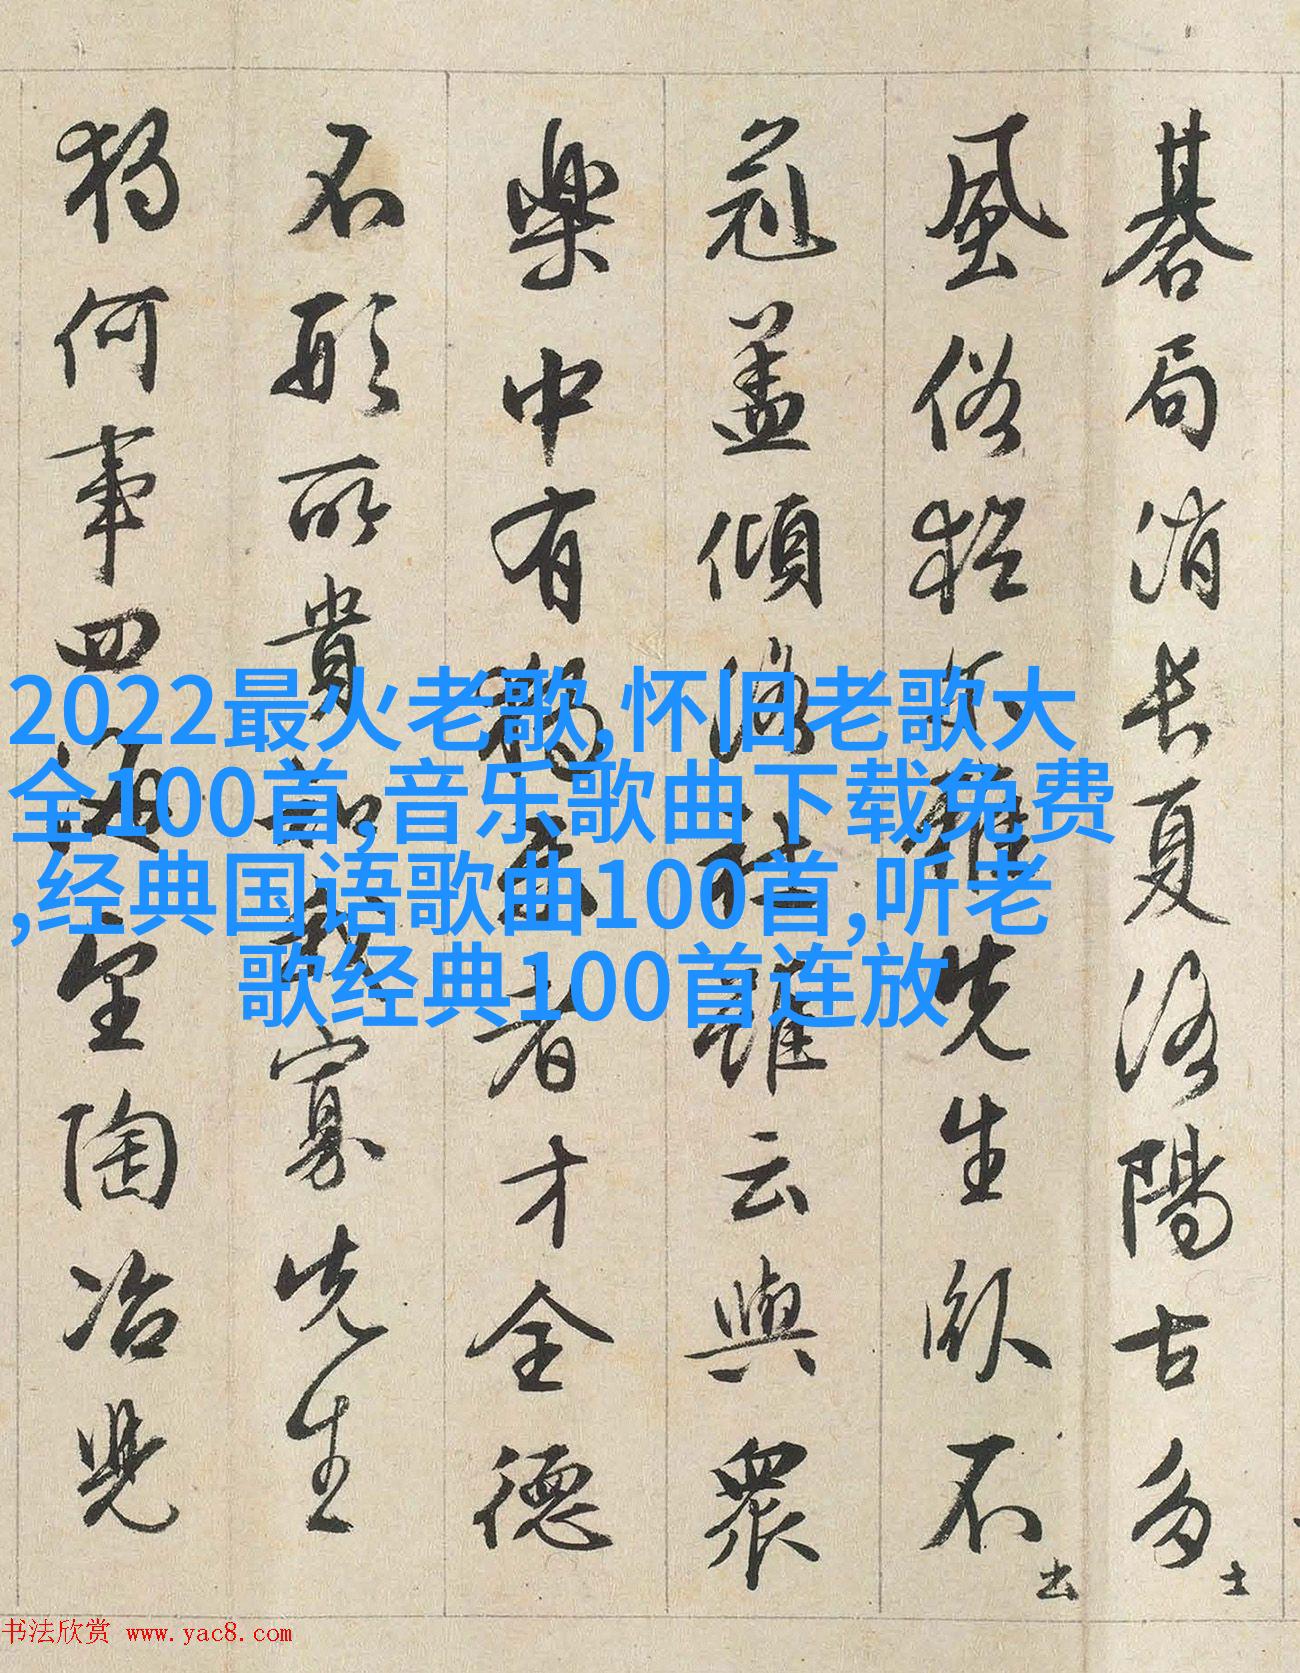 碁局消長夏洛陽古多士
風俗猶尔雅先生卧不出
冠盖傾洛社雖云與衆
樂中有獨樂者才全德
不形所貴知我寡先生
獨何事四海望陶冶兒
2022最火老歌,怀旧老歌大
全100首,音乐歌曲下载免费
,经典国语歌曲100首,听老
歌经典100首连放
书法欣赏 www.yac8.com